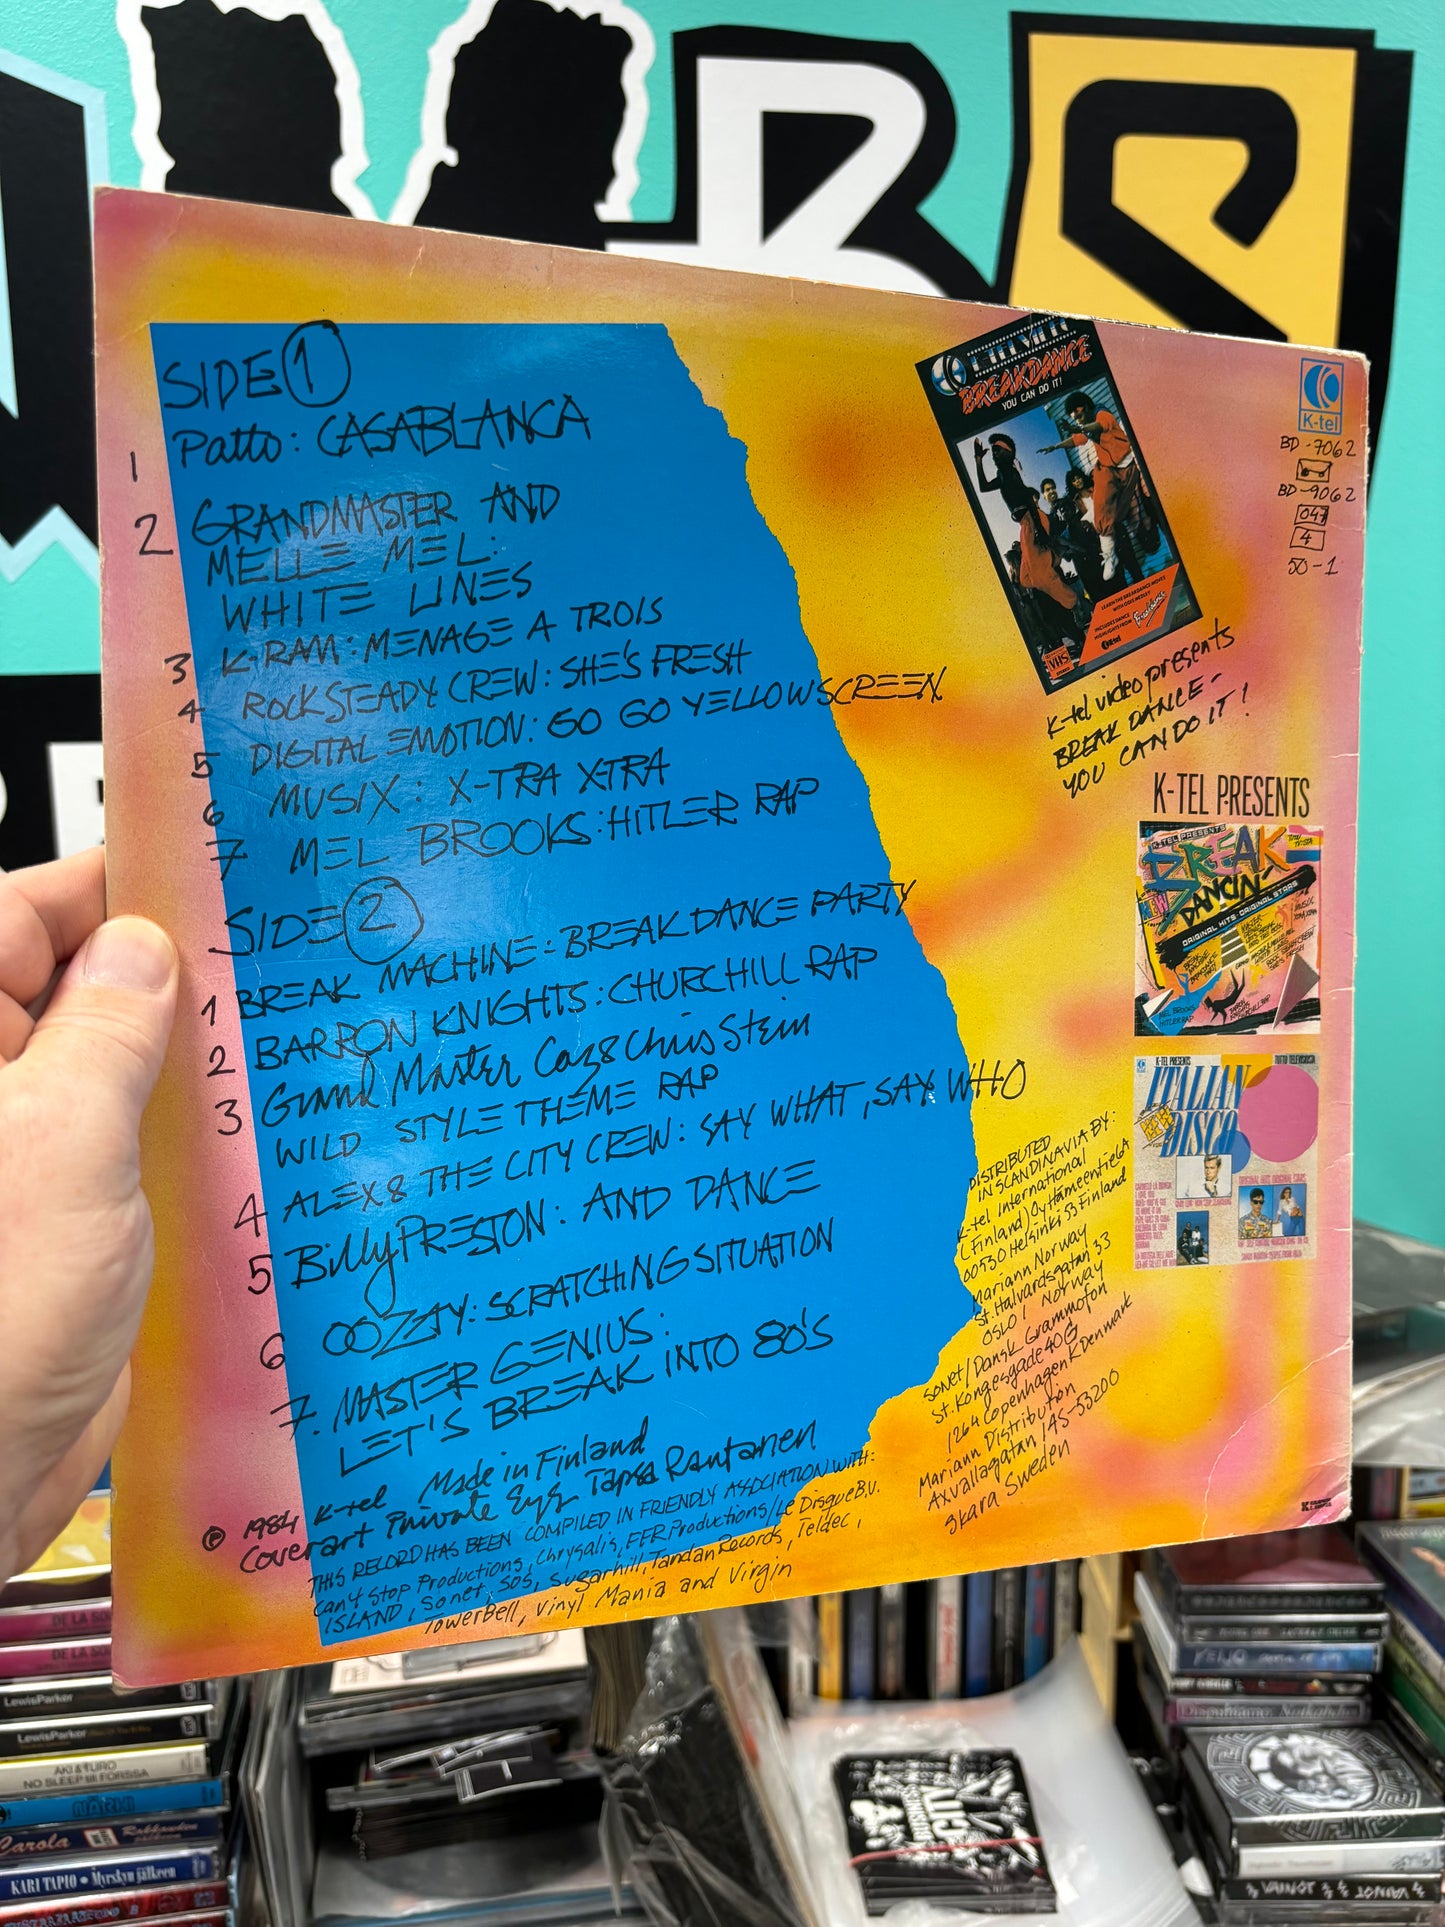 SIDE 1
1 Patto: CASABLANCA
2 GRANDMASTER AND
MELLE MEL:
WHITE LINES
3 K-RAM: MENAGE A TROIS
4 ROCKSTEADY CREW: SHE'S FRESH
5 DIGITAL EMOTION: GO GO YELLOW SCREEN
6 MUSIX: X-TRA X-TRA
7 MEL BROOKS: HITLER RAP
SIDE 2
1 BREAK MACHINE: BREAK DANCE PARTY
2 BARRON KNIGHTS: CHURCHILL RAP
3 Grand Master Caz & Chris Stein
WILD STYLE THEME RAP
4 ALEX & THE CITY CREW: SAY WHAT, SAY WHO
5 Billy PRESTON: AND DANCE
6 OOZZAY: SCRATCHING SITUATION
7. MASTER GENIUS:
LET'S BREAK INTO 80'S
℗ 1984 K-tel Made in Finland
Coverart Private Eye & Tapsa Rautanen
THIS RECORD HAS BEEN COMPILED IN FRIENDLY ASSOCIATION WITH:
Can't Stop Productions, Chrysalis, EFR Productions / Le Disque B.V.
ISLAND, Sonet, SOS, Sugarhill, Tandan Records, Teldec,
TowerBell, Vinyl Mania and Virgin
K-TEL VIDEO
BREAKDANCE
YOU CAN DO IT!
LEARN THE BREAKDANCE MOVES
INCLUDES DANCE
HIGHLIGHTS FROM
K-tel
VHS
K-tel video presents
BREAK DANCE -
YOU CAN DO IT!
K-tel
BD-7062
BD-9062
047
4
50-1
K-TEL PRESENTS
K-TEL PRESENTS
BREAK
DANCIN'
NEW
ORIGINAL HITS · ORIGINAL STARS
MEL BROOKS
HITLER RAP
K-TEL PRESENTS
ITALIAN
DISCO
DISTRIBUTED
IN SCANDINAVIA BY:
K-tel International
(Finland) Oy Hämeentie 6A
00530 Helsinki 53 Finland
Mariann Norway
St. Halvardsgatan 33
OSLO 1 Norway
Sonet / Dansk Grammofon
St. Kongesgade 40 G
1264 Copenhagen K Denmark
Mariann Distribution
Axvallagatan 1 AS-53200
Skara Sweden
BS
DE LA SO
DE LA SO
LewisParker
LewisParker
ÄKI & TURO
NO SLEEP till FORSSA
Carola
KARI TAPIO • Myrskyn jälkeen
CITY